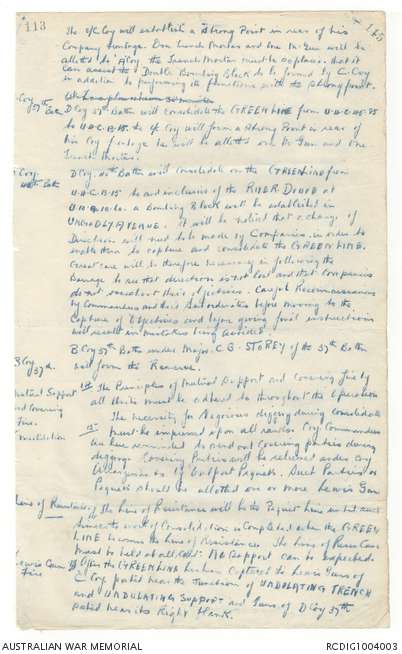 113
145
The O/C Coy will establish a Strong Point in rear of his
Company frontage. One Trench Mortar and one M. Gun will be
allotted to 'A' Coy. The Trench Mortar must be so placed that it
can assist the Double Bombing Block to be formed by C. Coy
in addition to performing its functions with the Strong point.
D Coy 37th Battn will consolidate the GREEN LINE from
to U.8.C.15. to O/C Coy will form a Strong Point in rear of
his Coy frontage he will be allotted one M. Gun and one
Trench Mortar.
D Coy 40th Battn will consolidate on the GREEN LINE from
U.8.C.15 to and inclusive of the RIVER DOUVE at
a Bombing Block will be established in
UNGODLY AVENUE. It will be noticed that a change of
Direction will need to be made by Companies in order to
enable them to capture and consolidate the GREEN LINE.
Great care will be therefore necessary in following the
Barrage to see that direction is not lost and that Companies
do not overshoot their objectives. Careful Reconnaissance
by Commanders and their Subordinates before moving to the
Capture of Objectives and before giving final instructions
will result in mistakes being avoided.
B Coy
37th.
B Coy 37th Battn under Major C.B. STOREY of the 37th Battn
will form the Reserve.
Mutual Support
and Covering
Fire.
The Principles of Mutual Support and Covering fire by
all Units must be adhered to throughout the Operation
The necessity for Vigorous digging during consolidation
must be impressed upon all ranks. Coy Commanders
are here reminded to send out Covering parties during
digging. Covering Parties will be relieved under Coy
arrangements by Outpost Piquets. Such Parties or
Piquets should be allotted one or more Lewis Gun
Line of Resistance
The Line of Resistance will be the Piquet Line until such
time the work of Consolidation is Completed when the GREEN
LINE becomes the Line of Resistance. The Line of Resistance
must be held at all Cost. No Support can be Expected.
Lewis Gun
Fire
After the GREEN LINE has been Captured the Lewis Guns of
C Coy posted near the Junction of UNDULATING TRENCH
and UNDULATING SUPPORT and Guns of D Coy 37th
posted near its Right flank.
AUSTRALIAN WAR MEMORIAL
RCDIG1004003